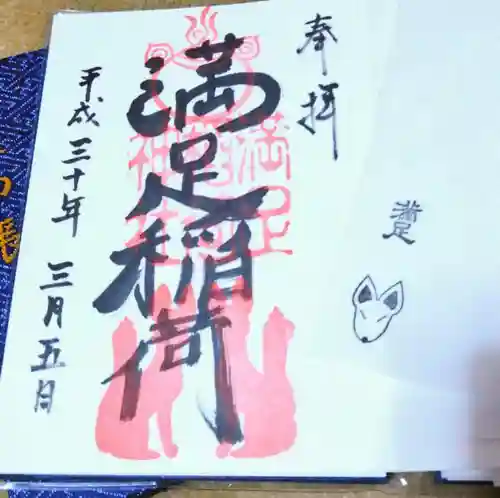 奉拝
満足稲荷
満足稲荷神社
平成三十年 三月五日
満足